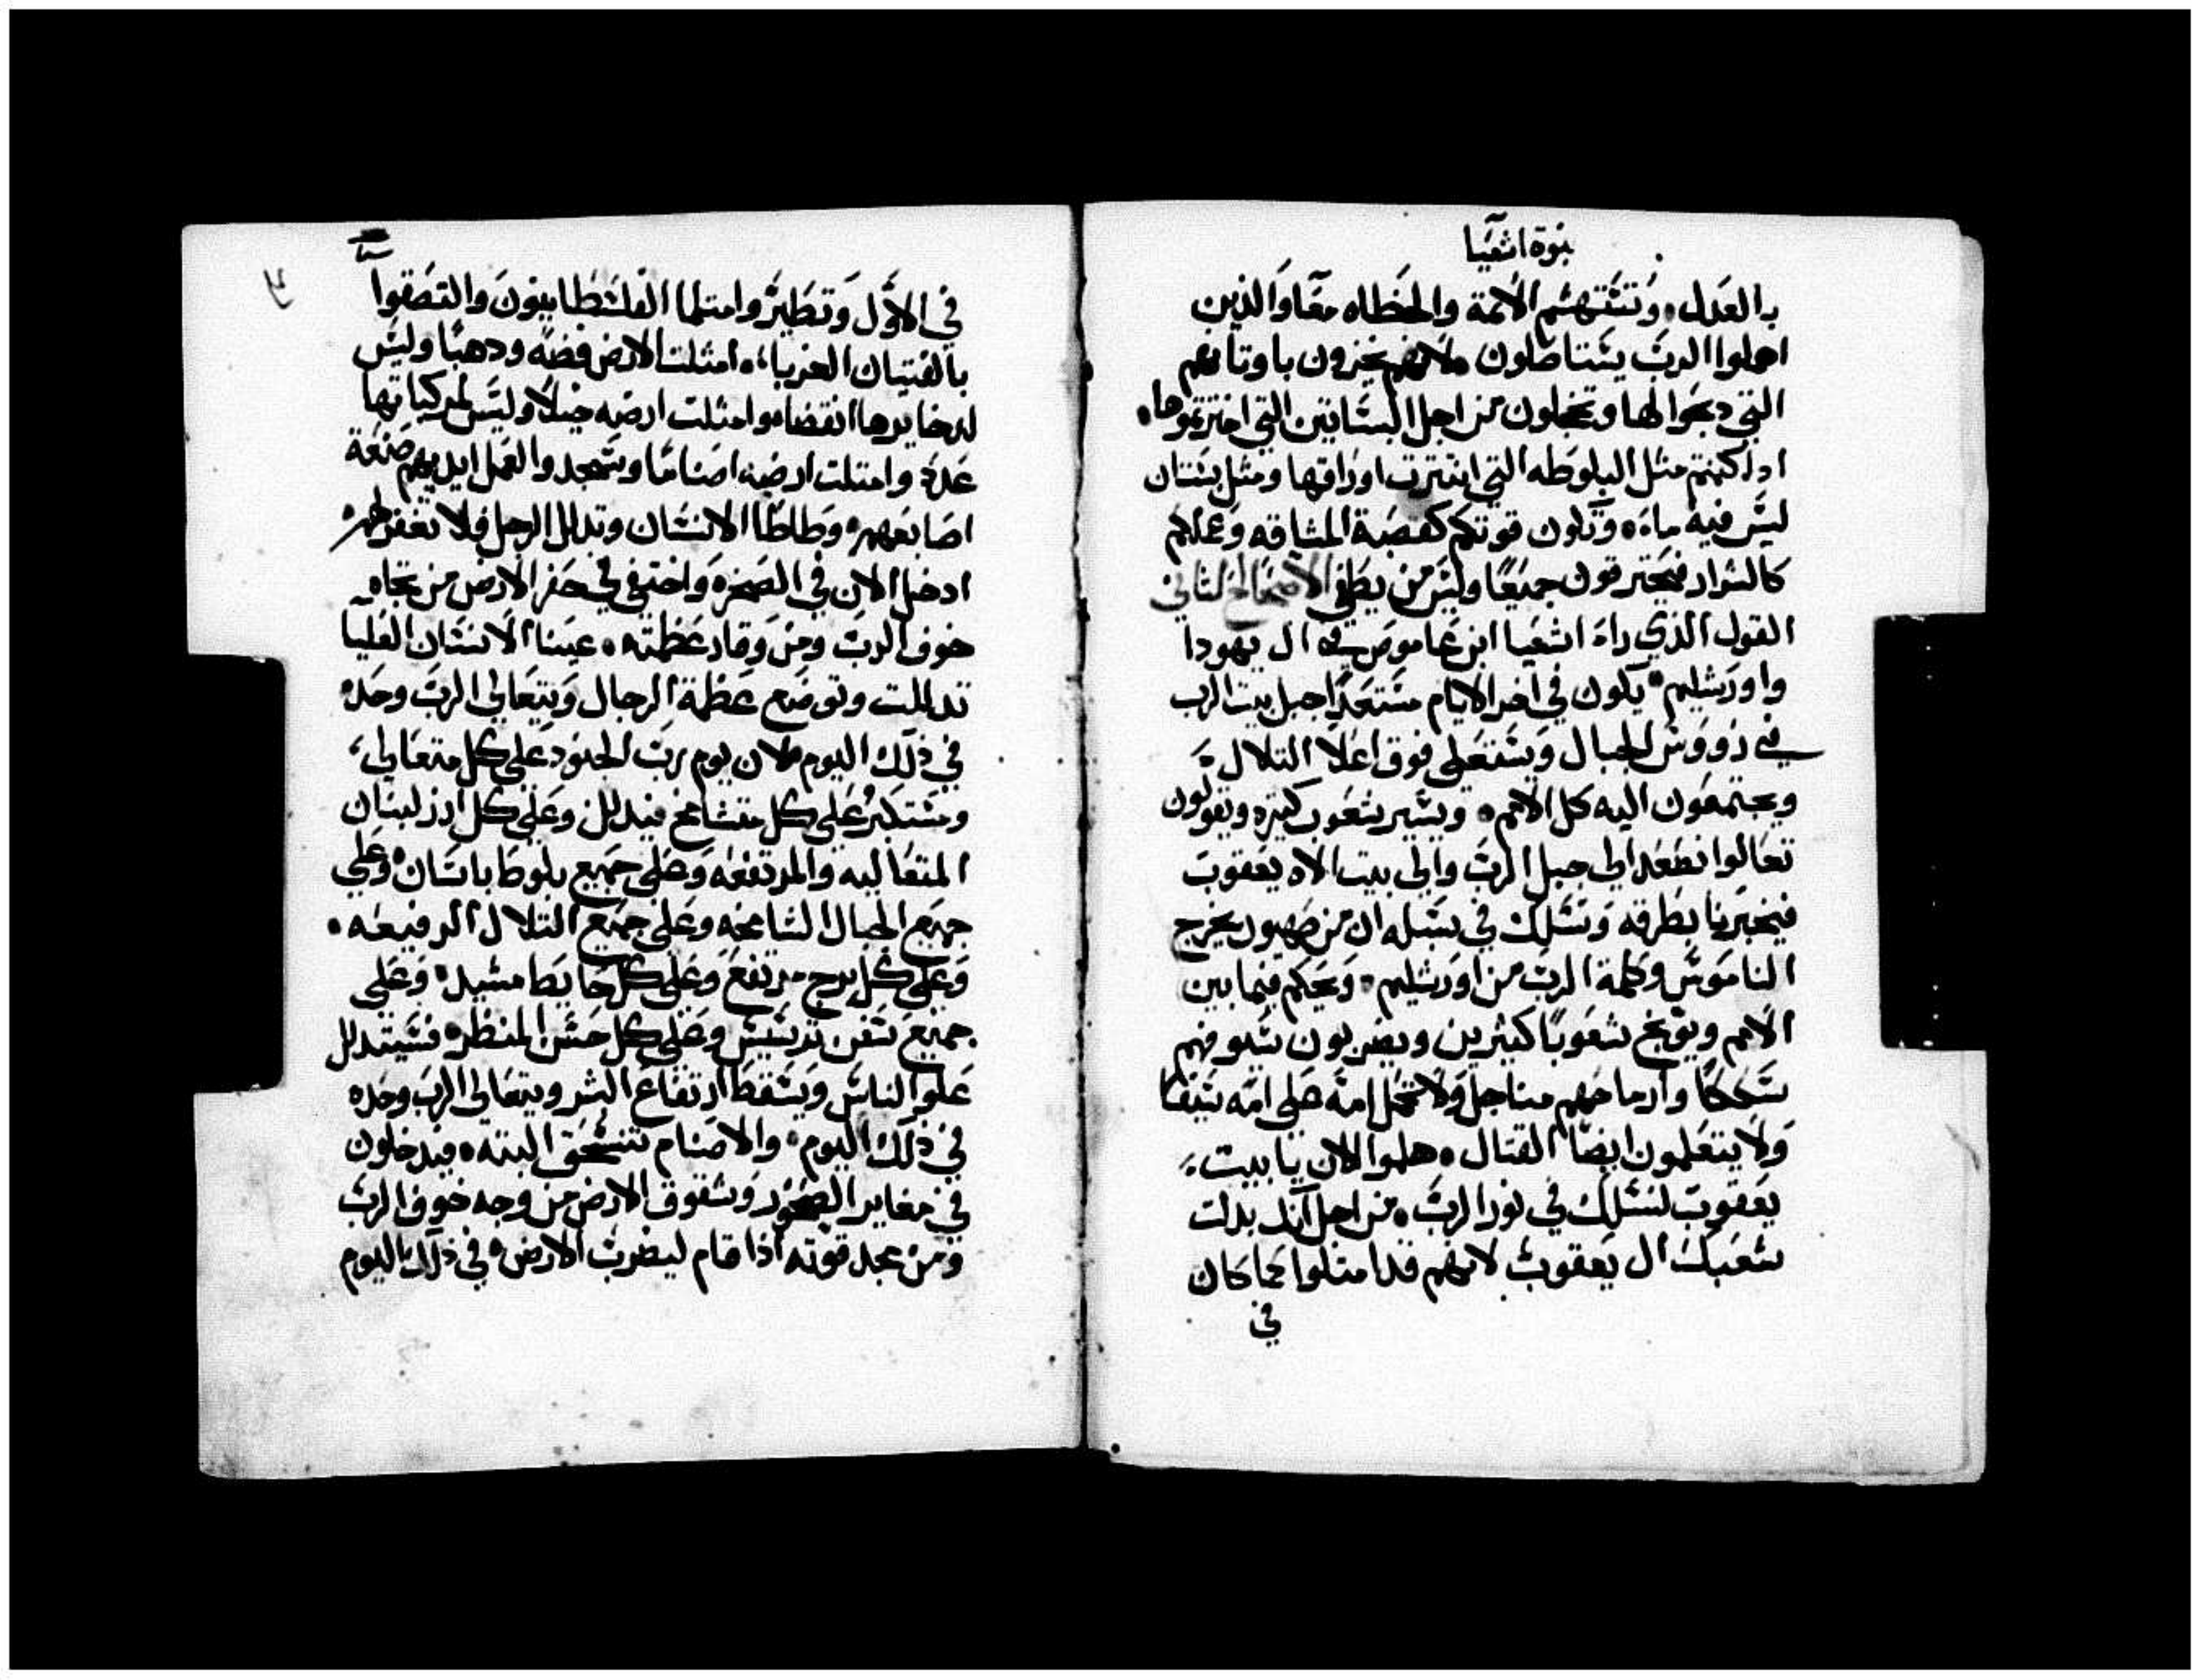 نبوة اشعيا
بالعدل. وتنتهشم الائمة والخطاه معًا والذين
اهملوا الرب يستاصلون. لانهم يخزون باوتانهم
التي دبحوا لها ويخجلون من اجل البساتين التي اخترتموها.
اداكنتم مثل البلوطه التي انتترت اوراقها ومثل بستان
ليس فيه ماء. وتكون قوتكم كقصبة المشاقه وعملكم
كالشرار فيحترقون جميعًا وليس من يطفي الاصحاح الثاني
القول الذي راه اشعيا ابن عاموص في ال يهودا
واورشليم. يكون في اخر الايام مستعدًا جبل بيت الرب
في رووس الجبال ويستعلي فوق اعلا التلال.
ويجتمعون اليه كل الامم. ويسير شعوب كتيره ويقولون
تعالوا نصعد الي جبل الرب والي بيت الاه يعقوب
فيخبرنا بطرقه ونسلك في سبله ان من صهيون يخرج
الناموس وكلمة الرب من اورشليم. ويحكم فيما بين
الامم ويوبخ شعوبًا كثيرين ويضربون سيوفهم
سككًا وارماحهم مناجل ولا تحمل امة علي امه سيفًا
ولا يتعلمون ايضًا القتال. هلموا الان يا بيت
يعقوب لنسلك في نور الرب. من اجل آنك بدلت
شعبك ال يعقوب لانهم قد امتلوا كما كان
في
في الاول وتطيروا متلما الفلسطانيون والتصقوا
بالفتيان الغربا. امتلت الارض فضه ودهبًا وليس
لدخايرها انقضا. وامتلت ارضه خيلًا وليس لمركباتها
عدد وامتلت ارضه اصنامًا ويسجدوا لعمل ايديهم صنعة
اصابعهم. وطاطا الانسان وتدلل الرجل فلا تغفر لهم.
ادخل الان في الصخره واختفي في حفر الارض من تجاه
خوف الرب ومن وقار عظمته. عينا الانسان العليا
تدللت وتوضع عظمة الرجال ويتعالي الرب وحده
في ذلك اليوم. لان يوم رب الجنود علي كل متعالي
ومستكبر علي كل متشامخ فيدلل وعلي كل ارز لبنان
المتعاليه والمرتفعه وعلي جميع بلوط باسان وعلي
جميع الجبال الشامخه وعلي جميع التلال الرفيعه.
وعلي كل برج مرتفع وعلي كل حايط مشيد وعلي
جميع سفن ترسيس وعلي كل حسن المنظر فسيتدلل
علو الناس ويسقط ارتفاع البشر ويتعالي الرب وحده
في ذلك اليوم. والاصنام تنسحق البته. فيدخلون
في مغاير الصخور وشقوق الارض من وجه خوف الرب
ومن مجد قوته اذا قام ليضرب الارض. في ذلك اليوم